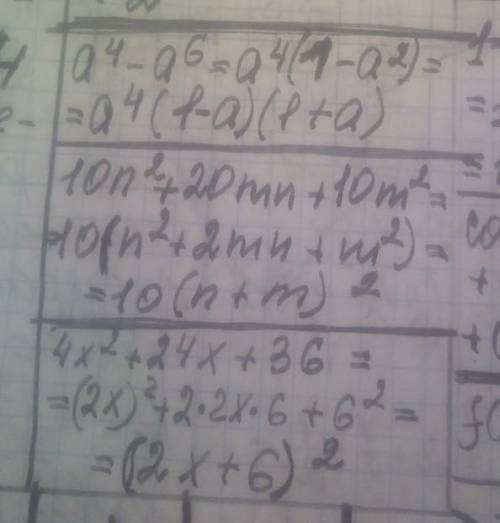 a⁴-a⁶=a⁴(1-a²)=
=a⁴(1-a)(1+a)
10n²+20mn+10m²=
=10(n²+2mn+m²)=
=10(n+m)²
4x²+24x+36=
=(2x)²+2·2x·6+6²=
=(2x+6)²